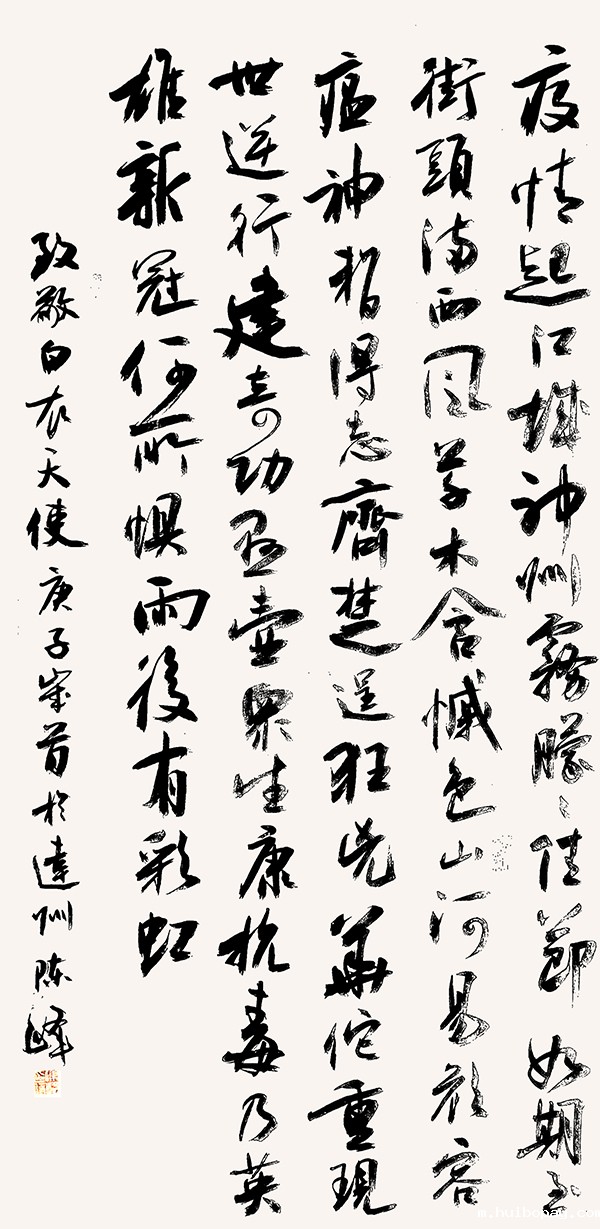 疫情起江城神州霧朦〻佳節如期至
街頭满西風草木含慽色山河易顔容
瘟神暂得志齊楚逞狂兇華佗重現
世逆行建奇功懸壺衆生康抗毒乃英
雄新冠何所懼雨後有彩虹
致敬白衣天使庚子歲首於達州陈峰